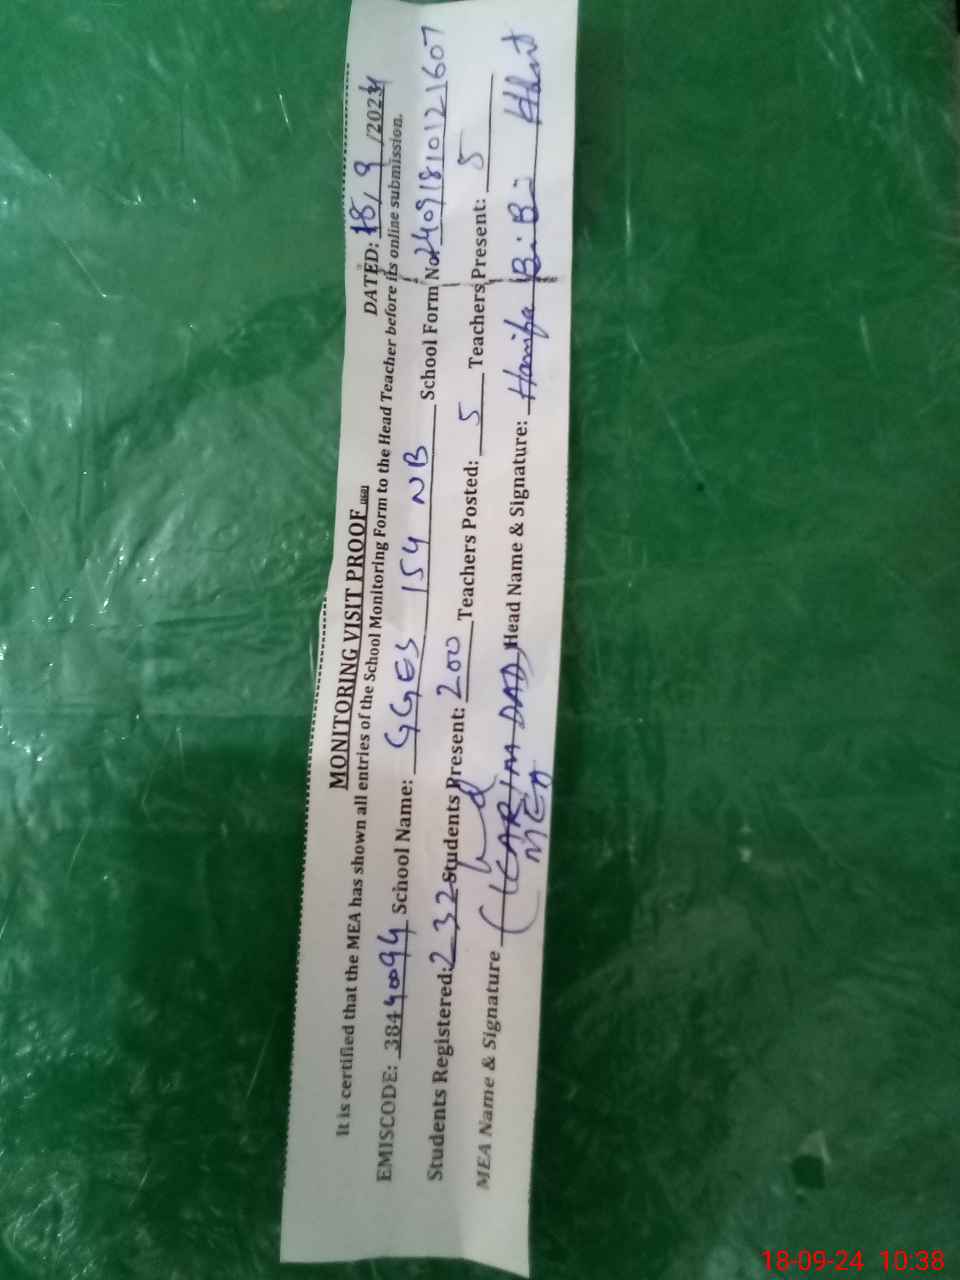 MONITORING VISIT PROOF
DATED: 18/9/2024
It is certified that the MEA has shown all entries of the School Monitoring Form to the Head Teacher before its online submission.
EMISCODE: 38440094 School Name: GGES 154 NB School Form No: 240918101221607
Students Registered: 232 Students Present: 200 Teachers Posted: 5 Teachers Present: 5
MEA Name & Signature (KARIM DAD) Head Name & Signature: Hanifa BiBi
MEA
18-09-24 10:38